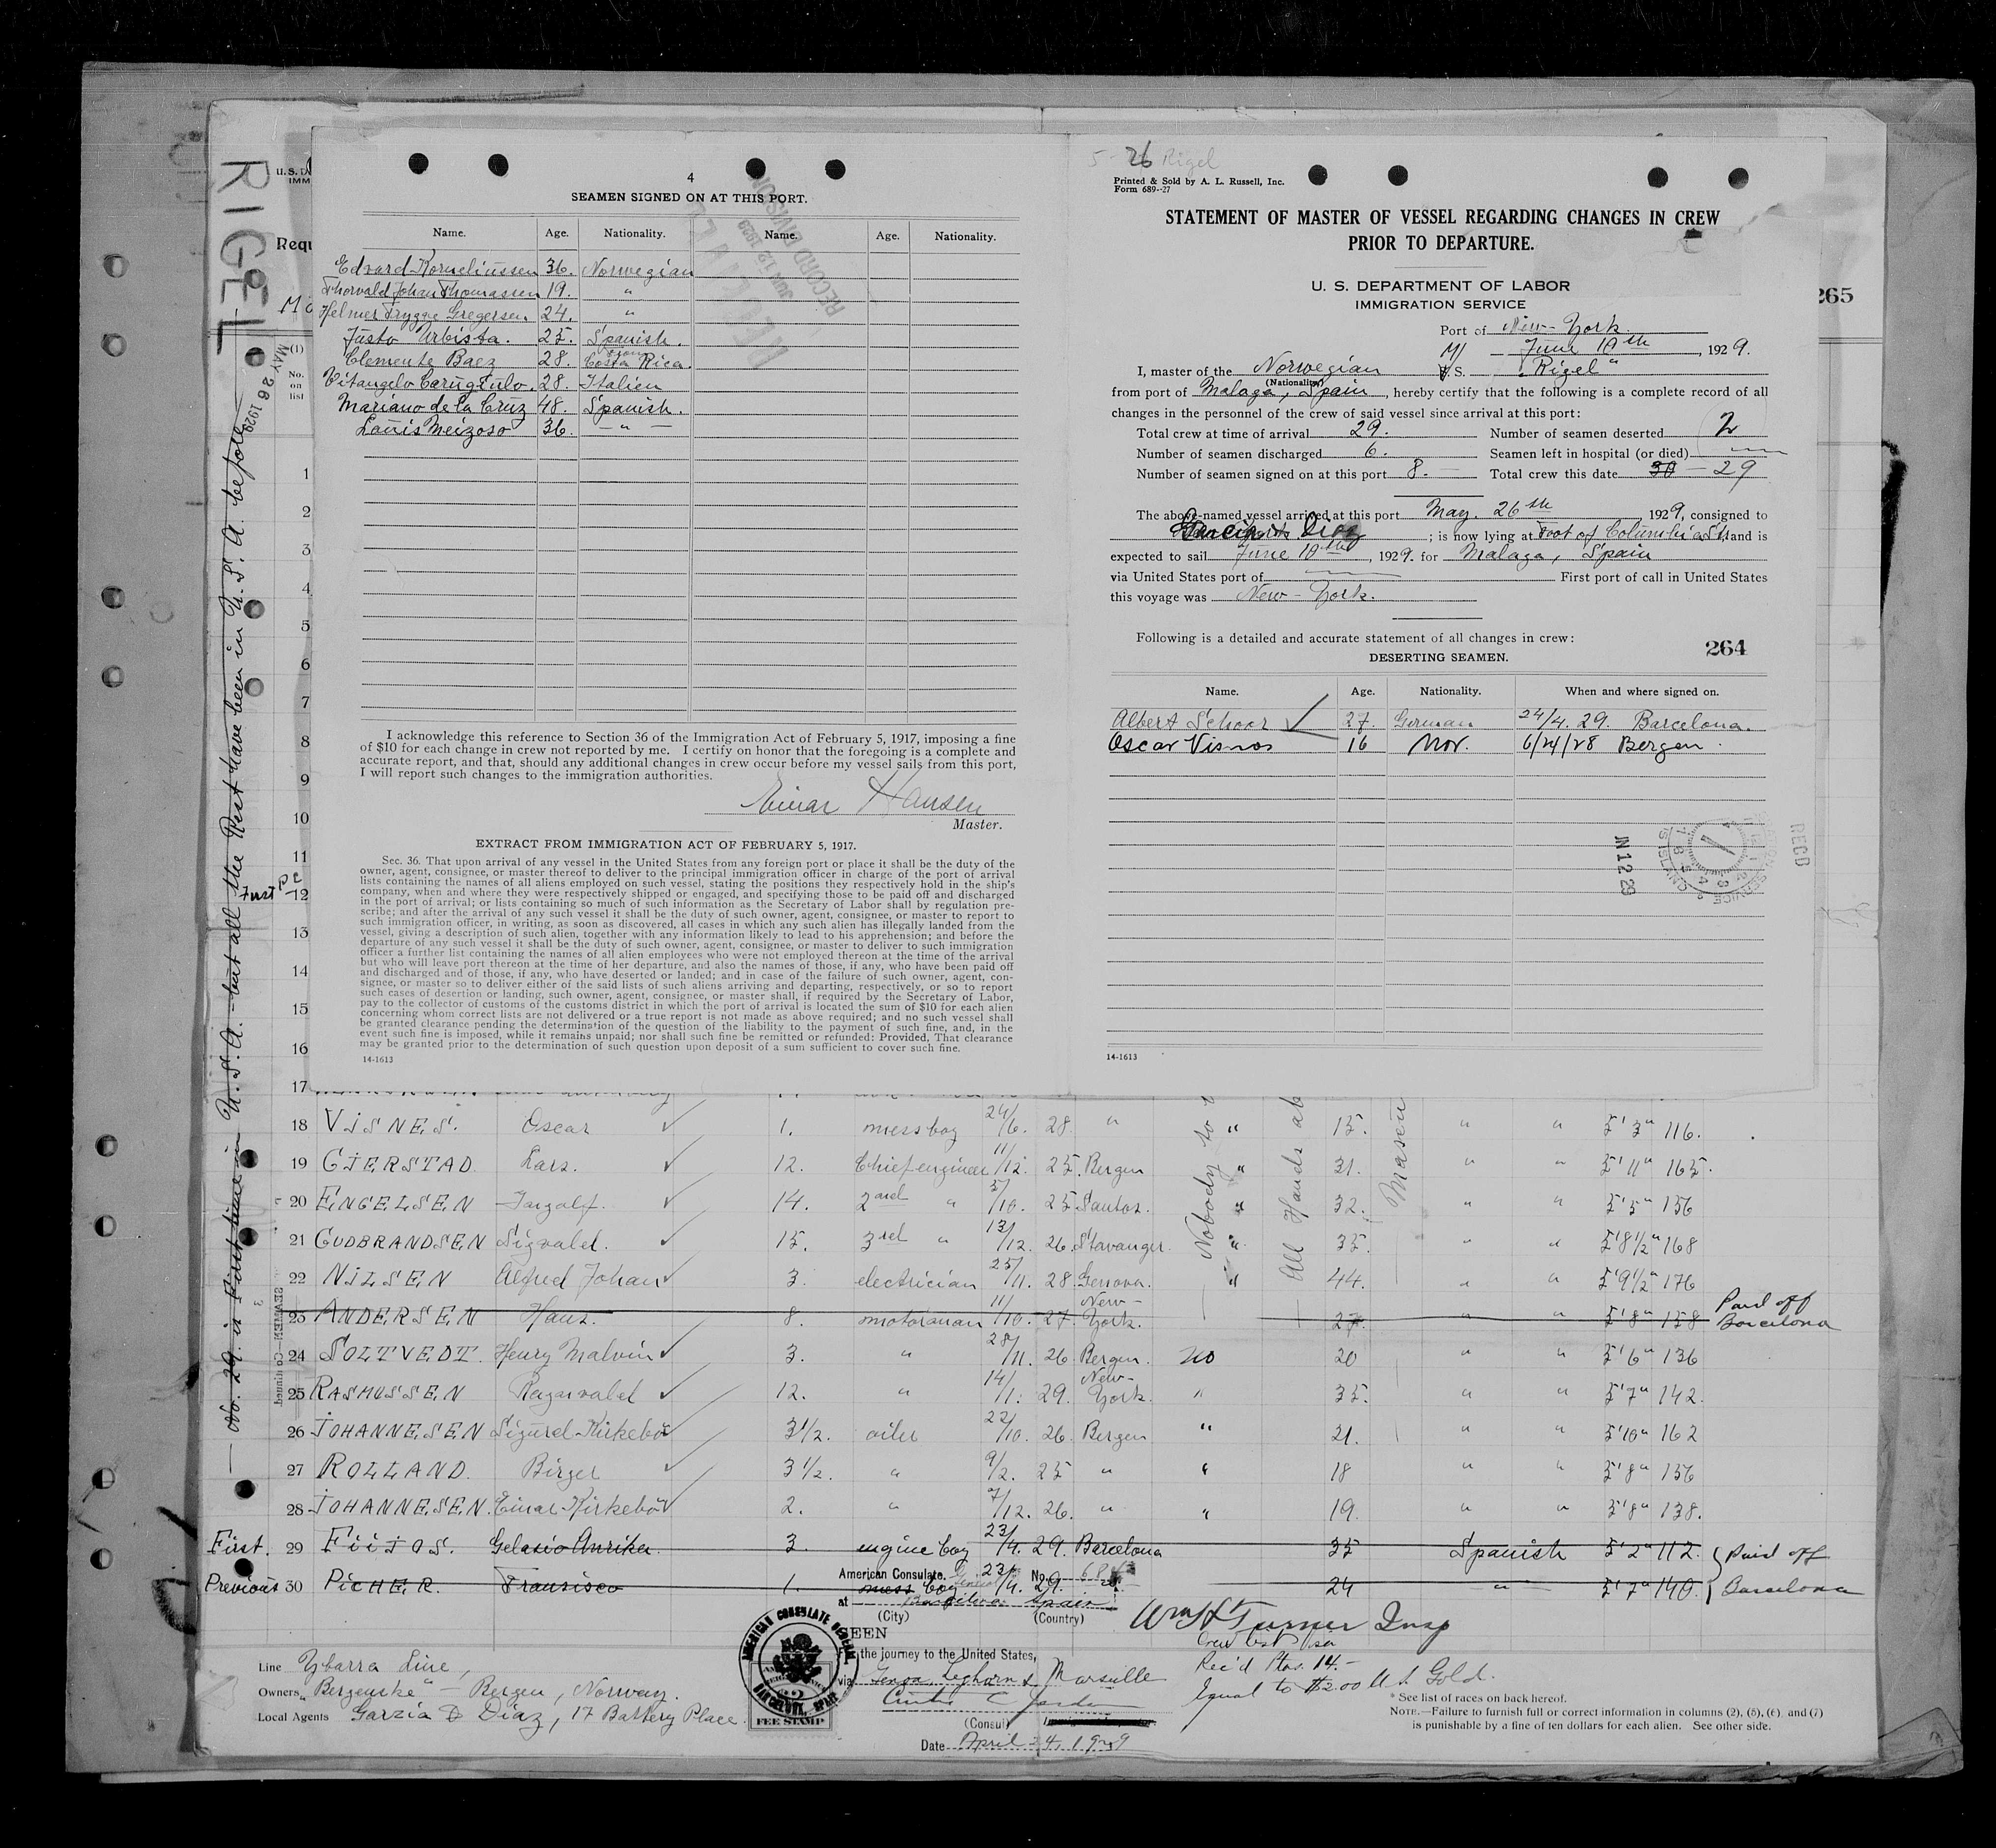 RIGEL
MAY 26 1929
— No. 29. is First time in U. S. A. — but all the Rest have been in U. S. A. before —
4
SEAMEN SIGNED ON AT THIS PORT.
Name. Age. Nationality. Name. Age. Nationality.
Edvard Korneliussen 36. Norwegian
Thorvald Johan Thomassen 19. "
Helmer Trygve Gregersen. 24. "
Justo Urbista. 25. Spanish.
Clemente Baez 28. Costa Rica.
Vitangelo Carugtulo. 28. Italien
Mariano de la Cruz 48. Spanish.
Louis Meizoso 36. — " —
I acknowledge this reference to Section 36 of the Immigration Act of February 5, 1917, imposing a fine
of $10 for each change in crew not reported by me. I certify on honor that the foregoing is a complete and
accurate report, and that, should any additional changes in crew occur before my vessel sails from this port,
I will report such changes to the immigration authorities.
Einar Hansen
Master.
EXTRACT FROM IMMIGRATION ACT OF FEBRUARY 5, 1917.
Sec. 36. That upon arrival of any vessel in the United States from any foreign port or place it shall be the duty of the
owner, agent, consignee, or master thereof to deliver to the principal immigration officer in charge of the port of arrival
lists containing the names of all aliens employed on such vessel, stating the positions they respectively hold in the ship's
company, when and where they were respectively shipped or engaged, and specifying those to be paid off and discharged
in the port of arrival; or lists containing so much of such information as the Secretary of Labor shall by regulation pre-
scribe; and after the arrival of any such vessel it shall be the duty of such owner, agent, consignee, or master to report to
such immigration officer, in writing, as soon as discovered, all cases in which any such alien has illegally landed from the
vessel, giving a description of such alien, together with any information likely to lead to his apprehension; and before the
departure of any such vessel it shall be the duty of such owner, agent, consignee, or master to deliver to such immigration
officer a further list containing the names of all alien employees who were not employed thereon at the time of the arrival
but who will leave port thereon at the time of her departure, and also the names of those, if any, who have been paid off
and discharged and of those, if any, who have deserted or landed; and in case of the failure of such owner, agent, con-
signee, or master so to deliver either of the said lists of such aliens arriving and departing, respectively, or so to report
such cases of desertion or landing, such owner, agent, consignee, or master shall, if required by the Secretary of Labor,
pay to the collector of customs of the customs district in which the port of arrival is located the sum of $10 for each alien
concerning whom correct lists are not delivered or a true report is not made as above required; and no such vessel shall
be granted clearance pending the determination of the question of the liability to the payment of such fine, and, in the
event such fine is imposed, while it remains unpaid; nor shall such fine be remitted or refunded: Provided, That clearance
may be granted prior to the determination of such question upon deposit of a sum sufficient to cover such fine.
14-1613
5-26 Rigel
Printed & Sold by A. L. Russell, Inc.
Form 689--27
STATEMENT OF MASTER OF VESSEL REGARDING CHANGES IN CREW
PRIOR TO DEPARTURE.
U. S. DEPARTMENT OF LABOR
IMMIGRATION SERVICE
265
Port of New-York.
June 10th, 1929.
I, master of the Norwegian M/S. "Rigel"
(Nationality)
from port of Malaga, Spain, hereby certify that the following is a complete record of all
changes in the personnel of the crew of said vessel since arrival at this port:
Total crew at time of arrival 29. Number of seamen deserted 2
Number of seamen discharged 6. Seamen left in hospital (or died)
Number of seamen signed on at this port 8. — Total crew this date 30 — 29
The above-named vessel arrived at this port May. 26th 1929, consigned to
Garcia & Diaz; is now lying at Foot of Columbia St. and is
expected to sail June 10th, 1929. for Malaga, Spain
via United States port of First port of call in United States
this voyage was New-York.
Following is a detailed and accurate statement of all changes in crew:
264
DESERTING SEAMEN.
Name. Age. Nationality. When and where signed on.
Albert Schoor 27. German 24/4. 29. Barcelona.
Oscar Visnos 16 Nor. 6/24/28 Bergen.
RECD
JN 12 29
14-1613
18 VISNES. Oscar 1. messboy 24/6. 28. " " 15. " " 5'3" 116.
19 GJERSTAD Lars. 12. Chief engineer 11/12. 25. Bergen " 31. " " 5'11" 165.
20 ENGELSEN Torgalf. 14. 2nd " 5/10. 25 Santos. " 32. " " 5'5" 156
21 GUDBRANDSEN Sigvald. 15. 3rd " 13/12. 26. Stavanger. " 35. " " 5'8½" 168
22 NILSEN Alfred Johan 3. electrician 25/11. 28. Genova. " 44. " " 5'9½" 176
23 ANDERSEN Hans. 8. motorman 11/10. 27. New-York. 27. " " 5'8" 158 Paid off Barcelona
24 SOLTVEDT. Henry Malvin 3. " 28/11. 26 Bergen. no 20 " " 5'6" 136
25 RASMUSSEN Ragnvald 12. " 14/1. 29. New-York. " 35. " " 5'7" 142.
26 JOHANNESEN Sigurd-Kirkebö 3½. oiler 22/10. 26. Bergen " 21. " " 5'10" 162
27 ROLLAND. Birger 3½. " 9/2. 25 " " 18 " " 5'8" 156
28 JOHANNESEN. Einar-Kirkebö 2. " 7/12. 26. " " 19. " " 5'8" 138.
First. 29 FIIJOS. Gelasio Anrika. 3. engine boy 23/4. 29. Barcelona 35 Spanish 5'2" 112. Paid off
Previous 30 PICHER. Fransisco 1. mess boy 23/4. 29. 24 " 5'7" 140. Barcelona
American Consulate. No.
at Barcelona Spain
(City) (Country)
Wm H Turner Insp
SEEN
the journey to the United States,
via Genoa, Leghorn & Marseille
(Consul)
Date April 24, 1929
Crew list visa
Rec'd Ptas. 14.-
Equal to $2.00 U.S. Gold.
AMERICAN CONSULATE GENERAL
BARCELONA, SPAIN
FEE STAMP
Line Ybarra Line,
Owners "Bergenske" — Bergen, Norway.
Local Agents Garzia & Diaz, 17 Battery Place.
* See list of races on back hereof.
NOTE.—Failure to furnish full or correct information in columns (2), (5), (6) and (7)
is punishable by a fine of ten dollars for each alien. See other side.